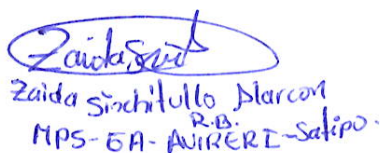 Zaida Sinchitullo Alarcon
R.B.
MPS-EA-AVIRERI-Satipo.